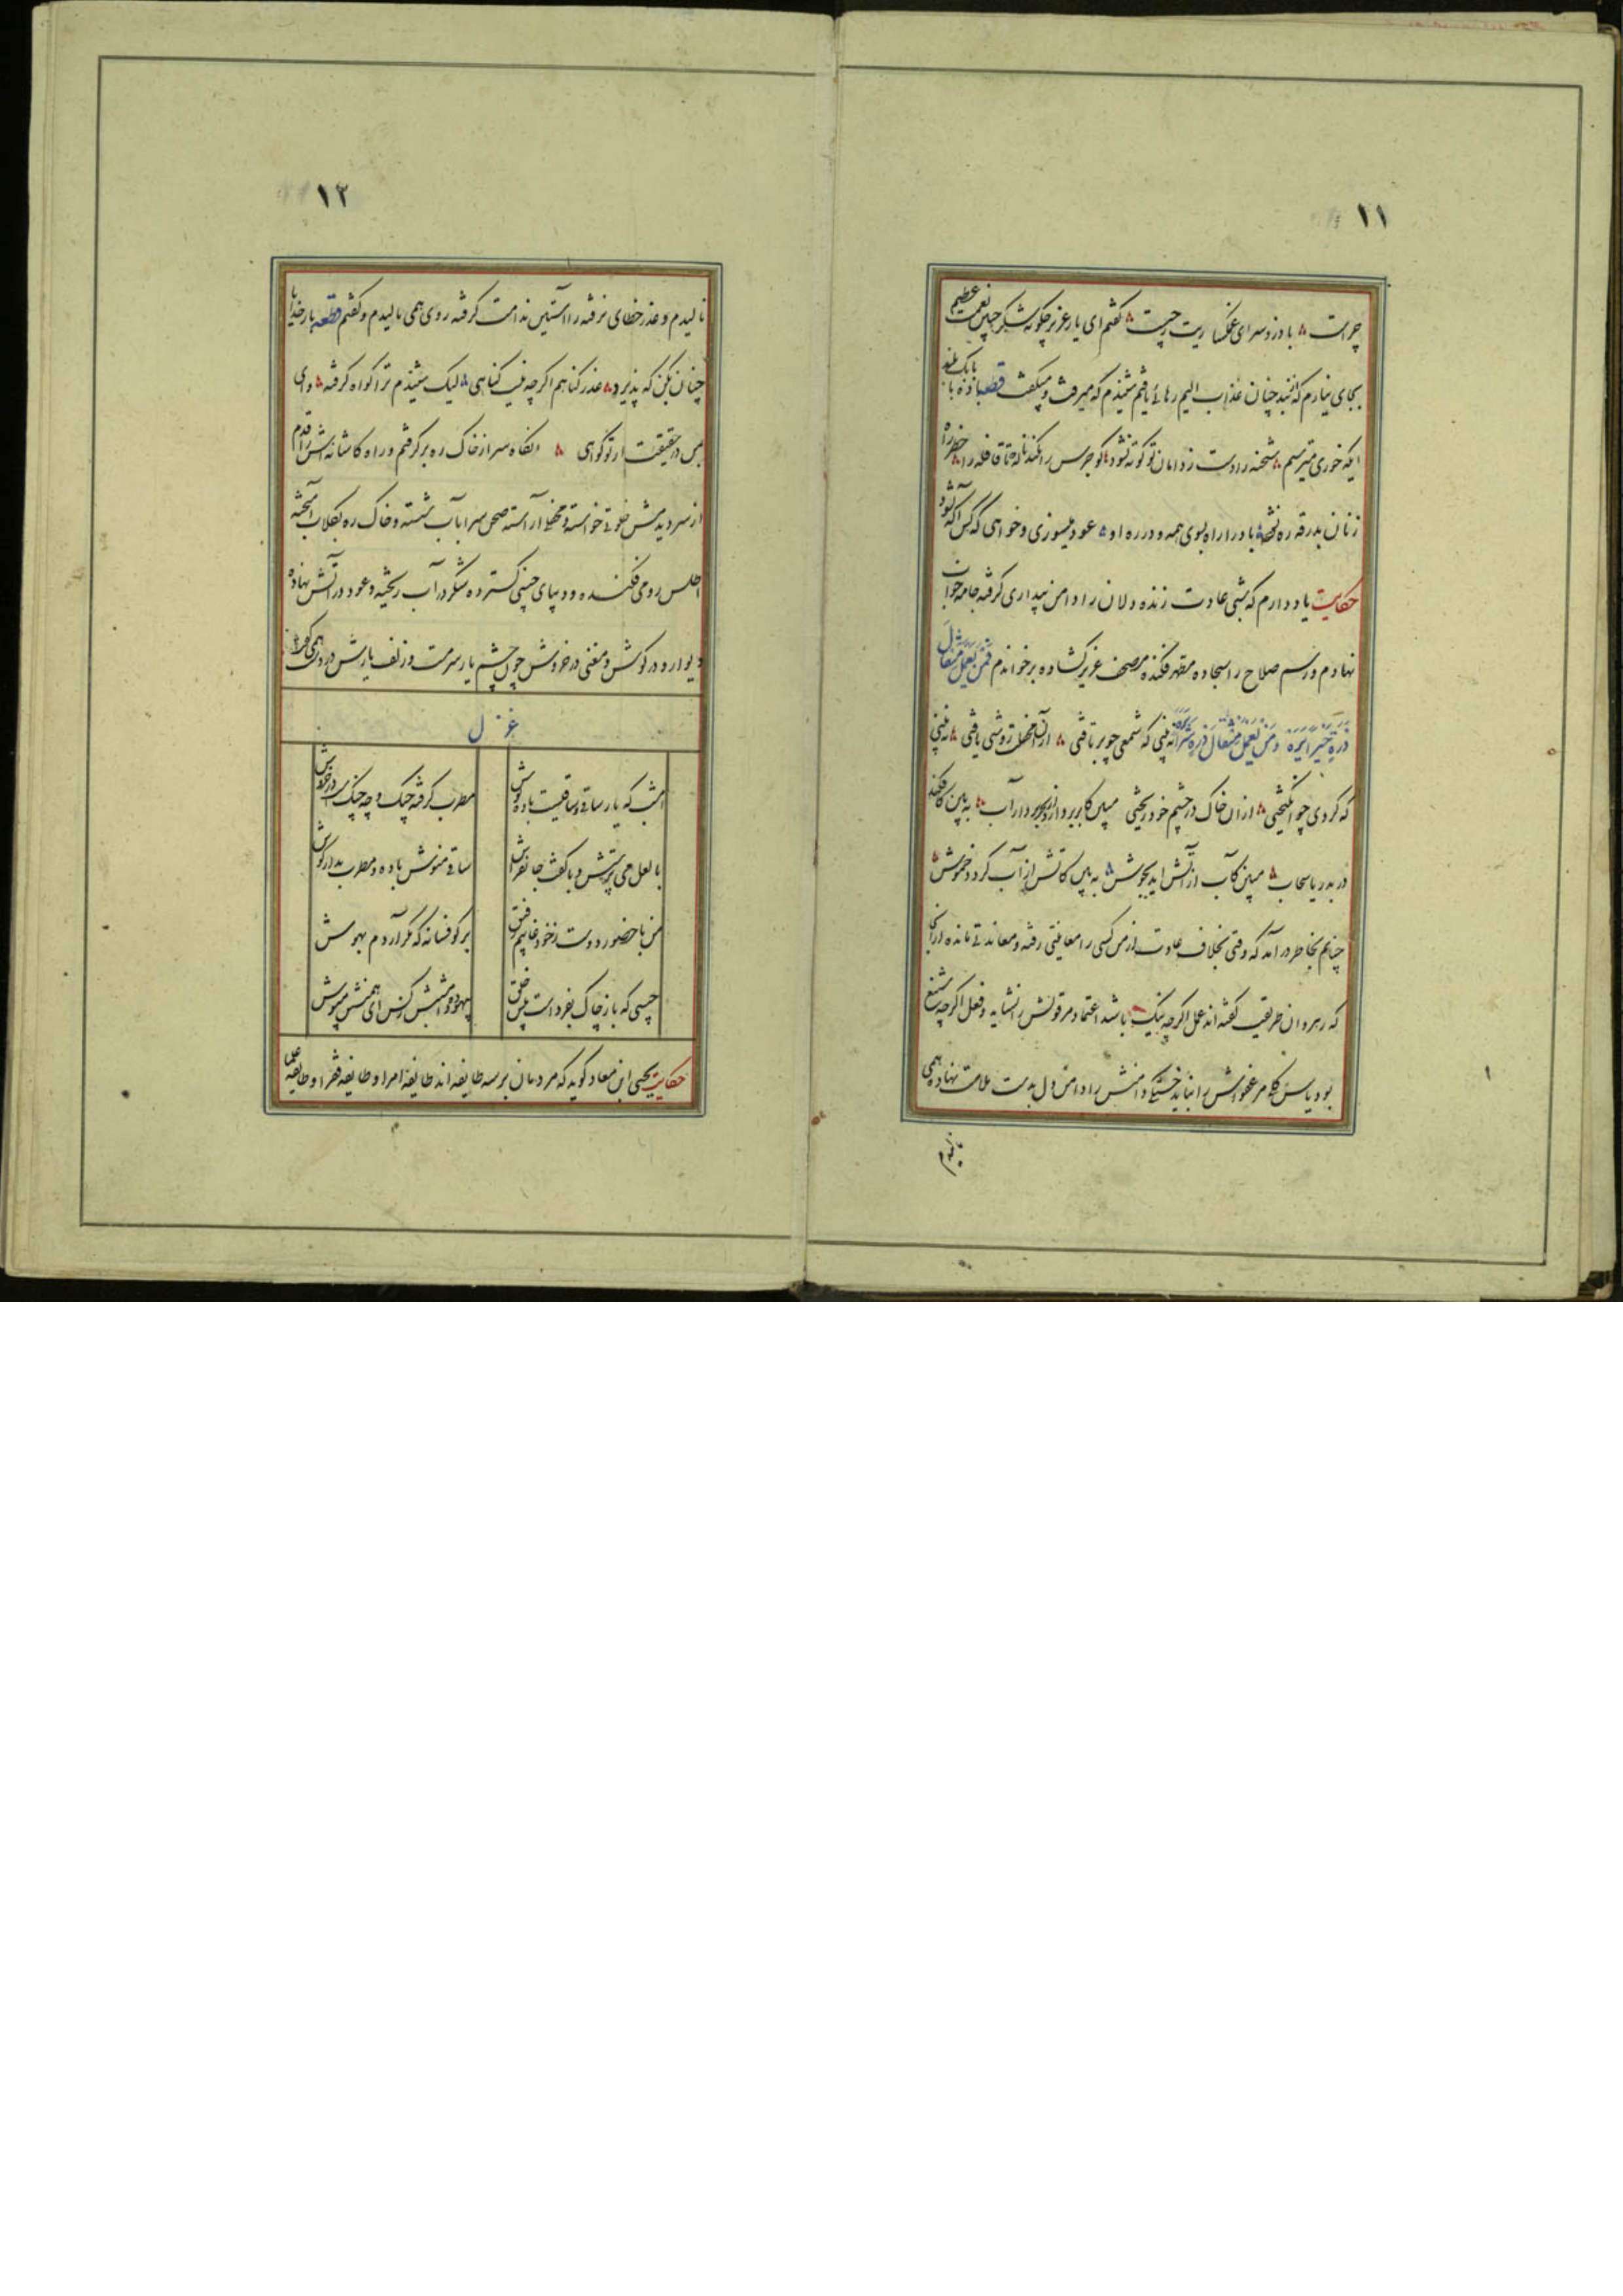 ۱۱
چراست با درد و سرای غمگساریت چیست گفتم ای یار عزیز چگونه شکر چنین نعمت عظیم
بجای نیارم که از بند چنان عذاب الیم رهائی یافتم شنیدم که میرفت و میگفت قطعه بانگ بلند
ایکه خوری میترسم شحنه را دست ز دامان تو کوته نشود کو جرس را نکند ناله تا قافله را خطر راه
زنان بدرقه ره نشود باد را راه بسوی همه و در ره او عود میسوزی و خواهی که کس آگه نشود
حکایت یاد دارم که شبی عادت زنده دلان را دامن بیداری گرفته جامه خواب
نهادم و رسم صلاح را سجاده مطهر فکنده مصحف عزیز گشاده برخواندم فمن یعمل مثقال
ذرة خیرا یره و من یعمل مثقال ذرة شرا یره نه بینی که شمعی چو برتافتی از آن محفل روشنی یافتی نه بینی
که گردی چو انگیختی از آن خاک در چشم خود ریختی مبین کابر بردارد آب به بین کافکند
در بدریا سحاب مبین کآب از آتش آید بجوش به بین کاتش از آب گردد خموش
چنانم بخاطر در آمد که وقتی بخلاف عادت از من کسی را معاینتی رفته و معاندتی مانده از آنجا
که رهروان طریقت گفته‌اند عمل اگر چه نیک باشد اعتماد مر قولش را نشاید و فعل اگر چه شنیع
بود یاس کلام مر عفوش را نباید خستگی دامنش را دامن دل بدست علامت نهاده همی
نالیدم
۱۲
نالیدم و عذر خطای نرفته را آستین ندامت گرفته روی همی مالیدم و گفتم قطعه بار خدایا
چنان بکن که پذیرد عذر گناهم اگر چه نیست گناهی لیک شنیدم ترا گواه گرفته وای
من در حقیقت ار تو گواهی آنگاه سر از خاک ره برگرفتم و راه کاشانه‌اش را قدم
از سر دیدمش خلوتی خواسته و محفلی آراسته صحن سرا بآب شسته و خاک ره بگلاب آمیخته
اطلس رومی فکنده و دیبای چینی گسترده شکر در آب ریخته و عود در آتش نهاده
دیوار و در گوش و مغنی در خروش چون چشم یار سرمست و زلف یارش در دست همی گفت
غزل
امشب که یار ساقی و ساقیست باده نوش
مطرب گرفته چنگ و چه چنگ است در خروش
با لعل می پرستش و با کف جانفزاش
ساقی منوش باده و مطرب بدار گوش
من با حضور دوست ز خود غایبم رفیق
برگو فسانه که مگر آردم بهوش
چیبی که باز چاک بفرداست پیش خلق
بیهوده امشبش کنس ای همنشین مپوش
حکایت یحیی ابن معاد گوید که مردمان بر سه طایفه‌اند طایفه امرا و طایفه فقرا و طایفه علما